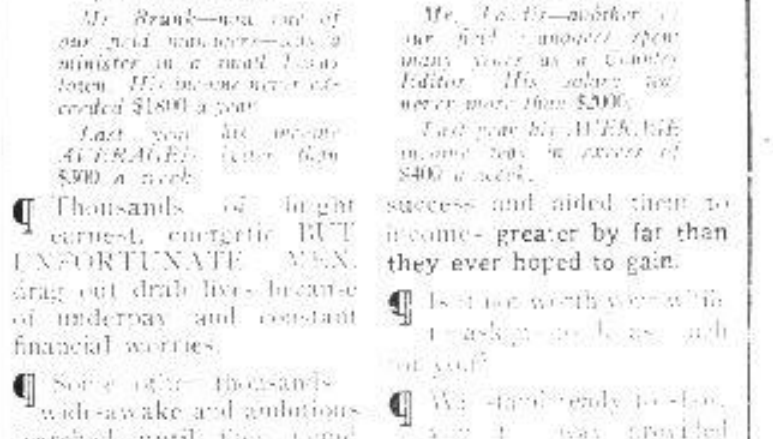 Mr. Brank—now one of
our field managers—was a
minister in a small Texas
town. His income never ex-
ceeded $1800 a year.
Last year his income
AVERAGED better than
$300 a week.
¶ Thousands of bright
earnest, energetic BUT
UNFORTUNATE MEN,
drag out drab lives because
of underpay and constant
financial worries.
¶ Some other thousands
wide-awake and ambitious
until they found
Mr. another of
our field managers spent
many years as a Country
Editor. His salary was
never more than $2000.
Last year his AVERAGE
income was in excess of
$400 a week.
success and aided them to
incomes greater by far than
they ever hoped to gain.
¶ Is it not worth your while
to ask us to do as much
for you?
¶ We stand ready to show
way provided